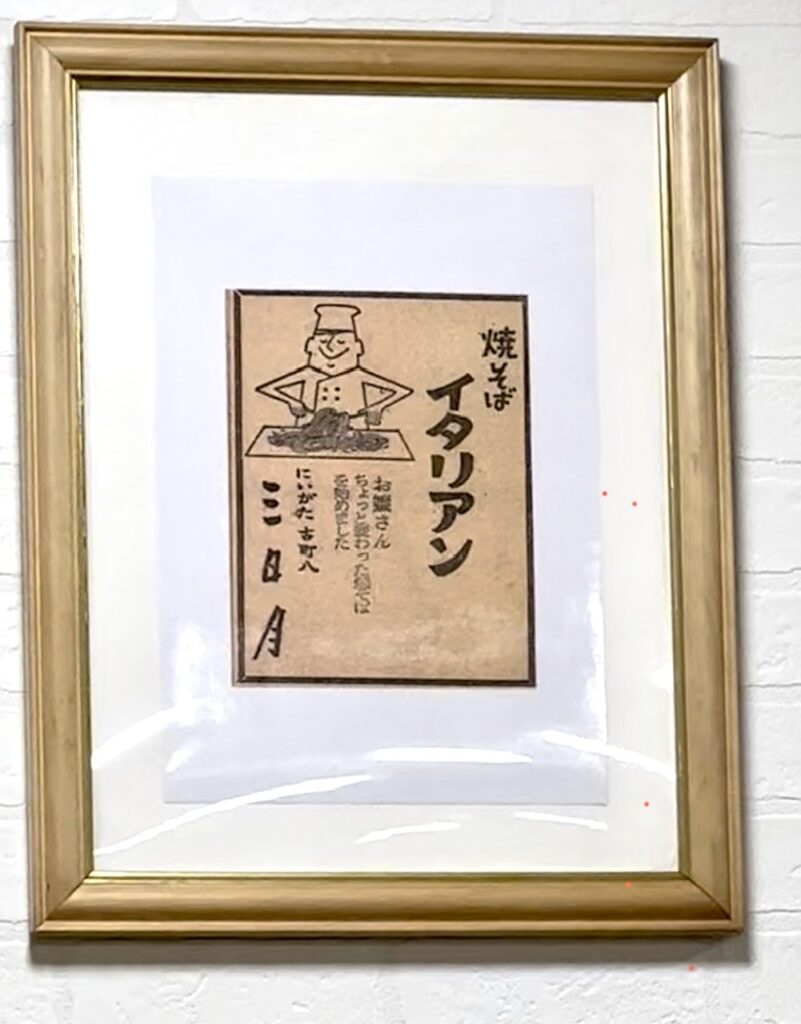 焼そば
イタリアン
お嬢さん
ちょっと変わった焼そば
を始めました
にいがた 古町八
三日月